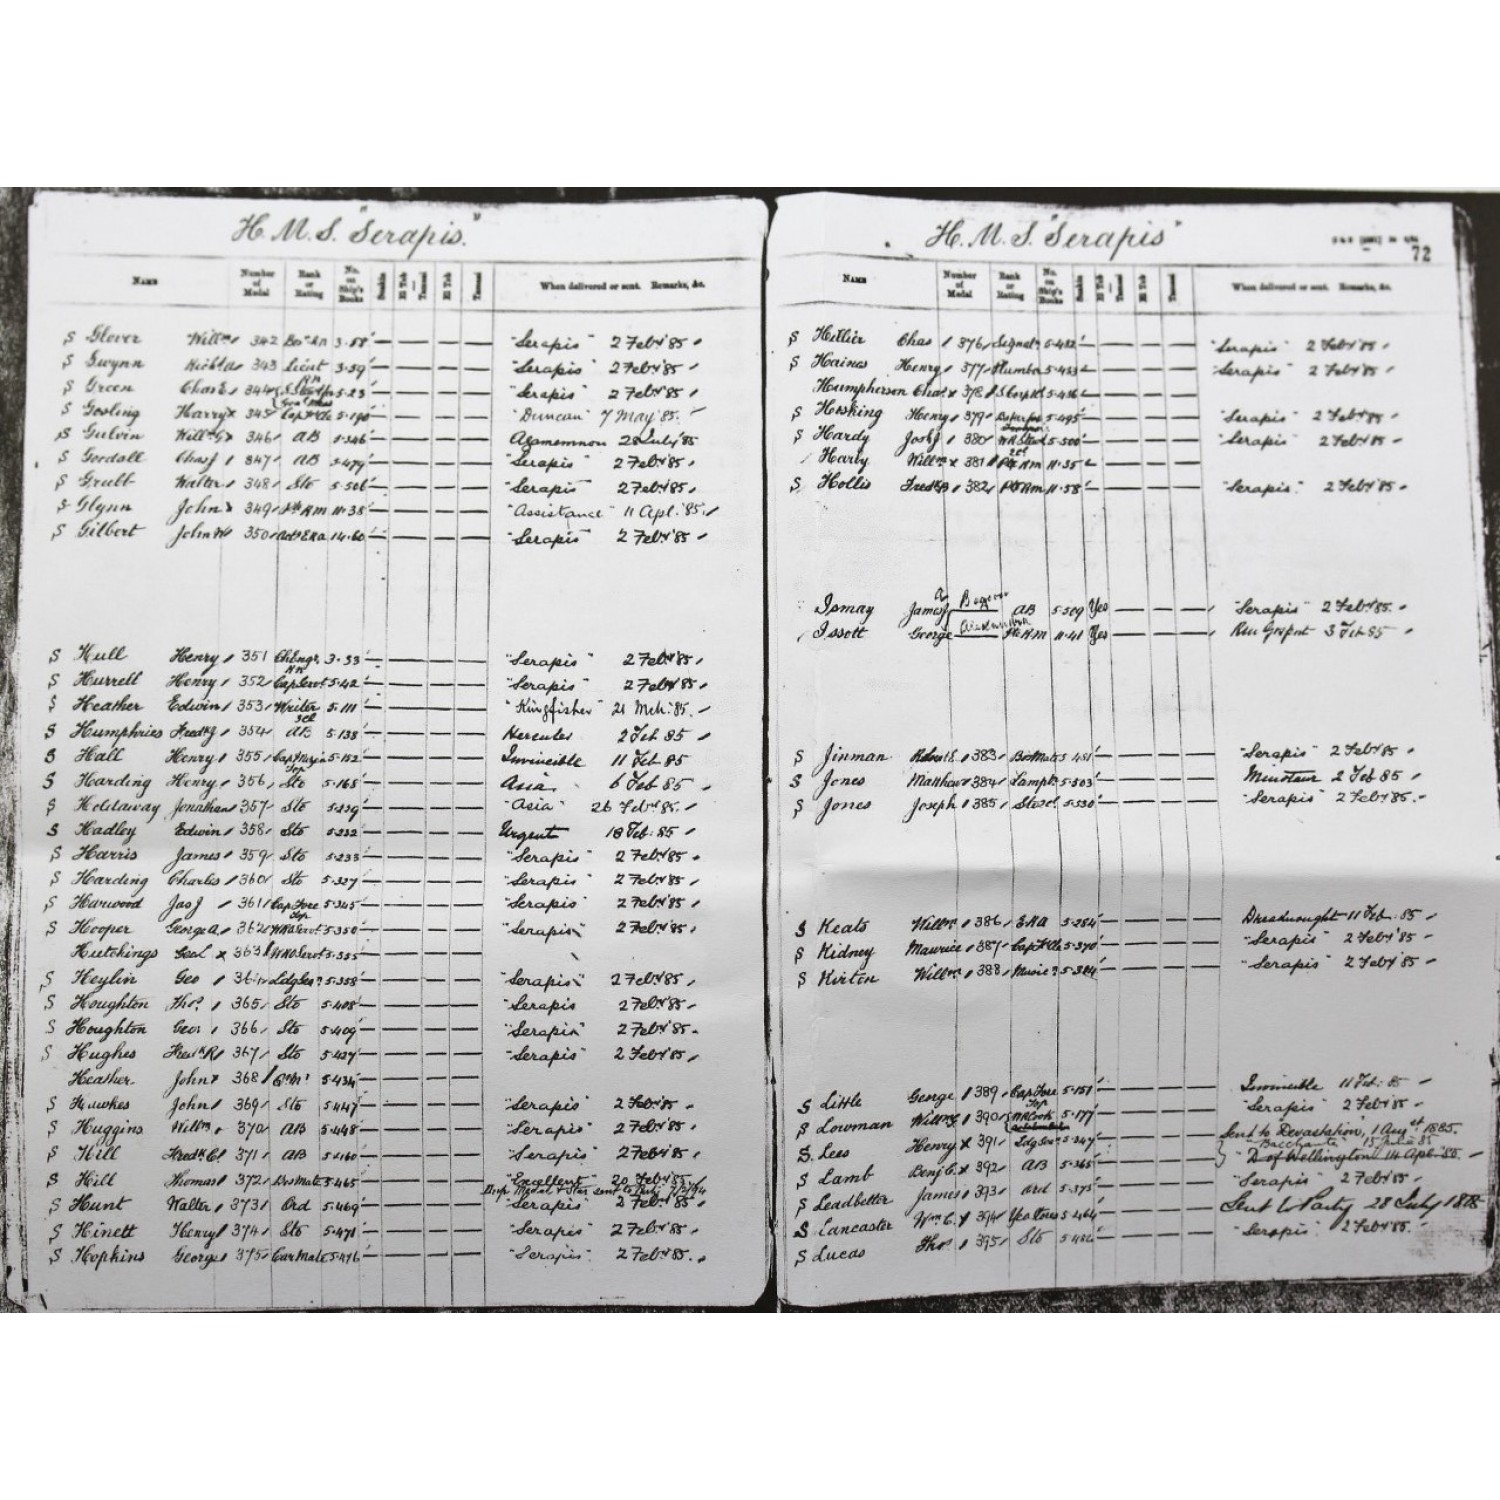 H.M.S. "Serapis."
NAME Number of Medal Rank or Rating No. on Ship's Books Suakin El Teb — Tamaai El Teb Tamaai When delivered or sent. Remarks, &c.
S Glover Willm 342 3·58 "Serapis" 2 Feby '85
S Gwynn Richd A 343 Lieut 3·59 "Serapis" 2 Feby '85
S Green Chas E 344 5·23 "Serapis" 2 Feby '85
S Gosling Harry x 345 5·190 "Duncan" 7 May '85.
S Gulvin Willm G x 346 AB 5·346 Agamemnon 28 July '85
S Goodall Chas J 347 AB 5·479 "Serapis" 2 Feby '85
S Grubb Walter 348 Sto 5·506 "Serapis" 2 Feby '85
S Glynn John x 349 Pte RM 11·38 "Assistance" 11 Apl. '85
S Gilbert John W 350 Actg ERA 14·60 "Serapis" 2 Feby '85
S Hull Henry 351 Ch Engr RN 3·33 "Serapis" 2 Feby '85
S Hurrell Henry 352 Cap Servt 5·42 "Serapis" 2 Feby '85
S Heather Edwin 353 Writer 3cl 5·111 "Kingfisher" 21 Mch: 85.
S Humphries Fredk J 354 AB 5·138 Hercules 2 Feb 85
S Hall Henry 355 Cap Mizn Top 5·152 Invincible 11 Feb 85
S Harding Henry 356 Sto 5·168 Asia 6 Feb 85
S Holdaway Jonathan 357 Sto 5·229 "Asia" 26 Feb 85.
S Hadley Edwin 358 Sto 5·232 Urgent 18 Feb: 85
S Harris James 359 Sto 5·233 "Serapis" 2 Feby '85
S Harding Charles 360 Sto 5·327 "Serapis" 2 Feby '85
S Harwood Jas J 361 Cap Fore Top 5·345 "Serapis" 2 Feby '85
S Hooper George A. 362 WRO Servt 5·350 "Serapis" 2 Feby '85
Hutchings Geo L x 363 WRO Servt 5·355
S Heylin Geo 364 Ldg Sea 5·358 "Serapis" 2 Feby '85
S Houghton Thos. 365 Sto 5·408 "Serapis" 2 Feby '85
S Houghton Geo. 366 Sto 5·409 "Serapis" 2 Feby '85
S Hughes Fredk R 367 Sto 5·427 "Serapis" 2 Feby '85
Heather John x 368 Qr Mr 5·434
S Hawkes John 369 Sto 5·447 "Serapis" 2 Feby '85
S Huggins Willm 370 AB 5·448 "Serapis" 2 Feby '85
S Hill Fredk C. 371 AB 5·460 "Serapis" 2 Feby '85
S Hill Thomas 372 5·465 "Excellent" 20 Feby '85
Dup. Medal & Star sent to
S Hunt Walter 373 Ord 5·469 "Serapis" 2 Feby '85
S Hinett Henry 374 Sto 5·471 "Serapis" 2 Feby '85
S Hopkins George 375 Car Mate 5·476 "Serapis" 2 Feby '85.
H.M.S. "Serapis"
72
NAME Number of Medal Rank or Rating No. on Ship's Books Suakin El Teb — Tamaai El Teb Tamaai When delivered or sent. Remarks, &c.
S Hillier Chas 376 Signaln 5·482 "Serapis" 2 Feby '85
S Haines Henry 377 Plumber 5·483 "Serapis" 2 Feby '85
Humpherson Chas x 378 5·486
S Hosking Henry 379 5·495 "Serapis" 2 Feby '85
S Hardy Josh J 380 5·500 "Serapis" 2 Feby '85
Harby Willm x 381 Pte RM 11·35
S Hollis Fredk B 382 Pte RM 11·58 "Serapis" 2 Feby '85
Ismay James J AB 5·509 Yes "Serapis" 2 Feby '85.
Issott George Pte RM 11·41 Yes 3 Feb 85
S Jinman Robert H 383 Bos Mate 5·451 "Serapis" 2 Feby '85
S Jones Matthew 384 Lampt 5·503 Minotaur 2 Feb 85
S Jones Joseph 385 Sto 2cl 5·530 "Serapis" 2 Feby '85.
S Keats Willm 386 ERA 5·254 Dreadnought 11 Feb. 85
S Kidney Maurice 387 5·370 "Serapis" 2 Feby '85
S Kirton Willm 388 Music 5·384 "Serapis" 2 Feby '85
S Little George 389 Cap Fore Top 5·151 Invincible 11 Feb: 85
S Lowman Willm G 390 WR Cook 5·177 "Serapis" 2 Feby '85
S. Lees Henry x 391 Ldg Sea 5·347 Sent to Devastation, 1 Augst 1885.
"Bacchante" 15 June 85
S Lamb Benj C. x 392 AB 5·365 "D of Wellington" 14 Apl. 85.
S Leadbetter James 393 Ord 5·375 "Serapis" 2 Feby '85
S Lancaster Wm C. x 394 Yeo Stores 5·464 Sent to Party 28 July 1878
S Lucas Thos 395 Sto 5·482 "Serapis" 2 Feby '85.